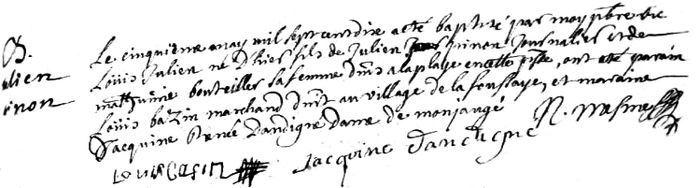 B.
Julien
Pinon
Le cinquiême may mil sept cent dixe a eté baptizé par moy pbre vic
Louis Julien né d'hier fils de Julien pinon Journalier et de
bouteiller sa femme dnt a la playe en cette psse, ont eté parain
Louis bazin marchand dnt au village de la foussaye, et maraine
Jacquine Renée Dandigné dame de monjaugé
Louis basin Jacquine Dandigné